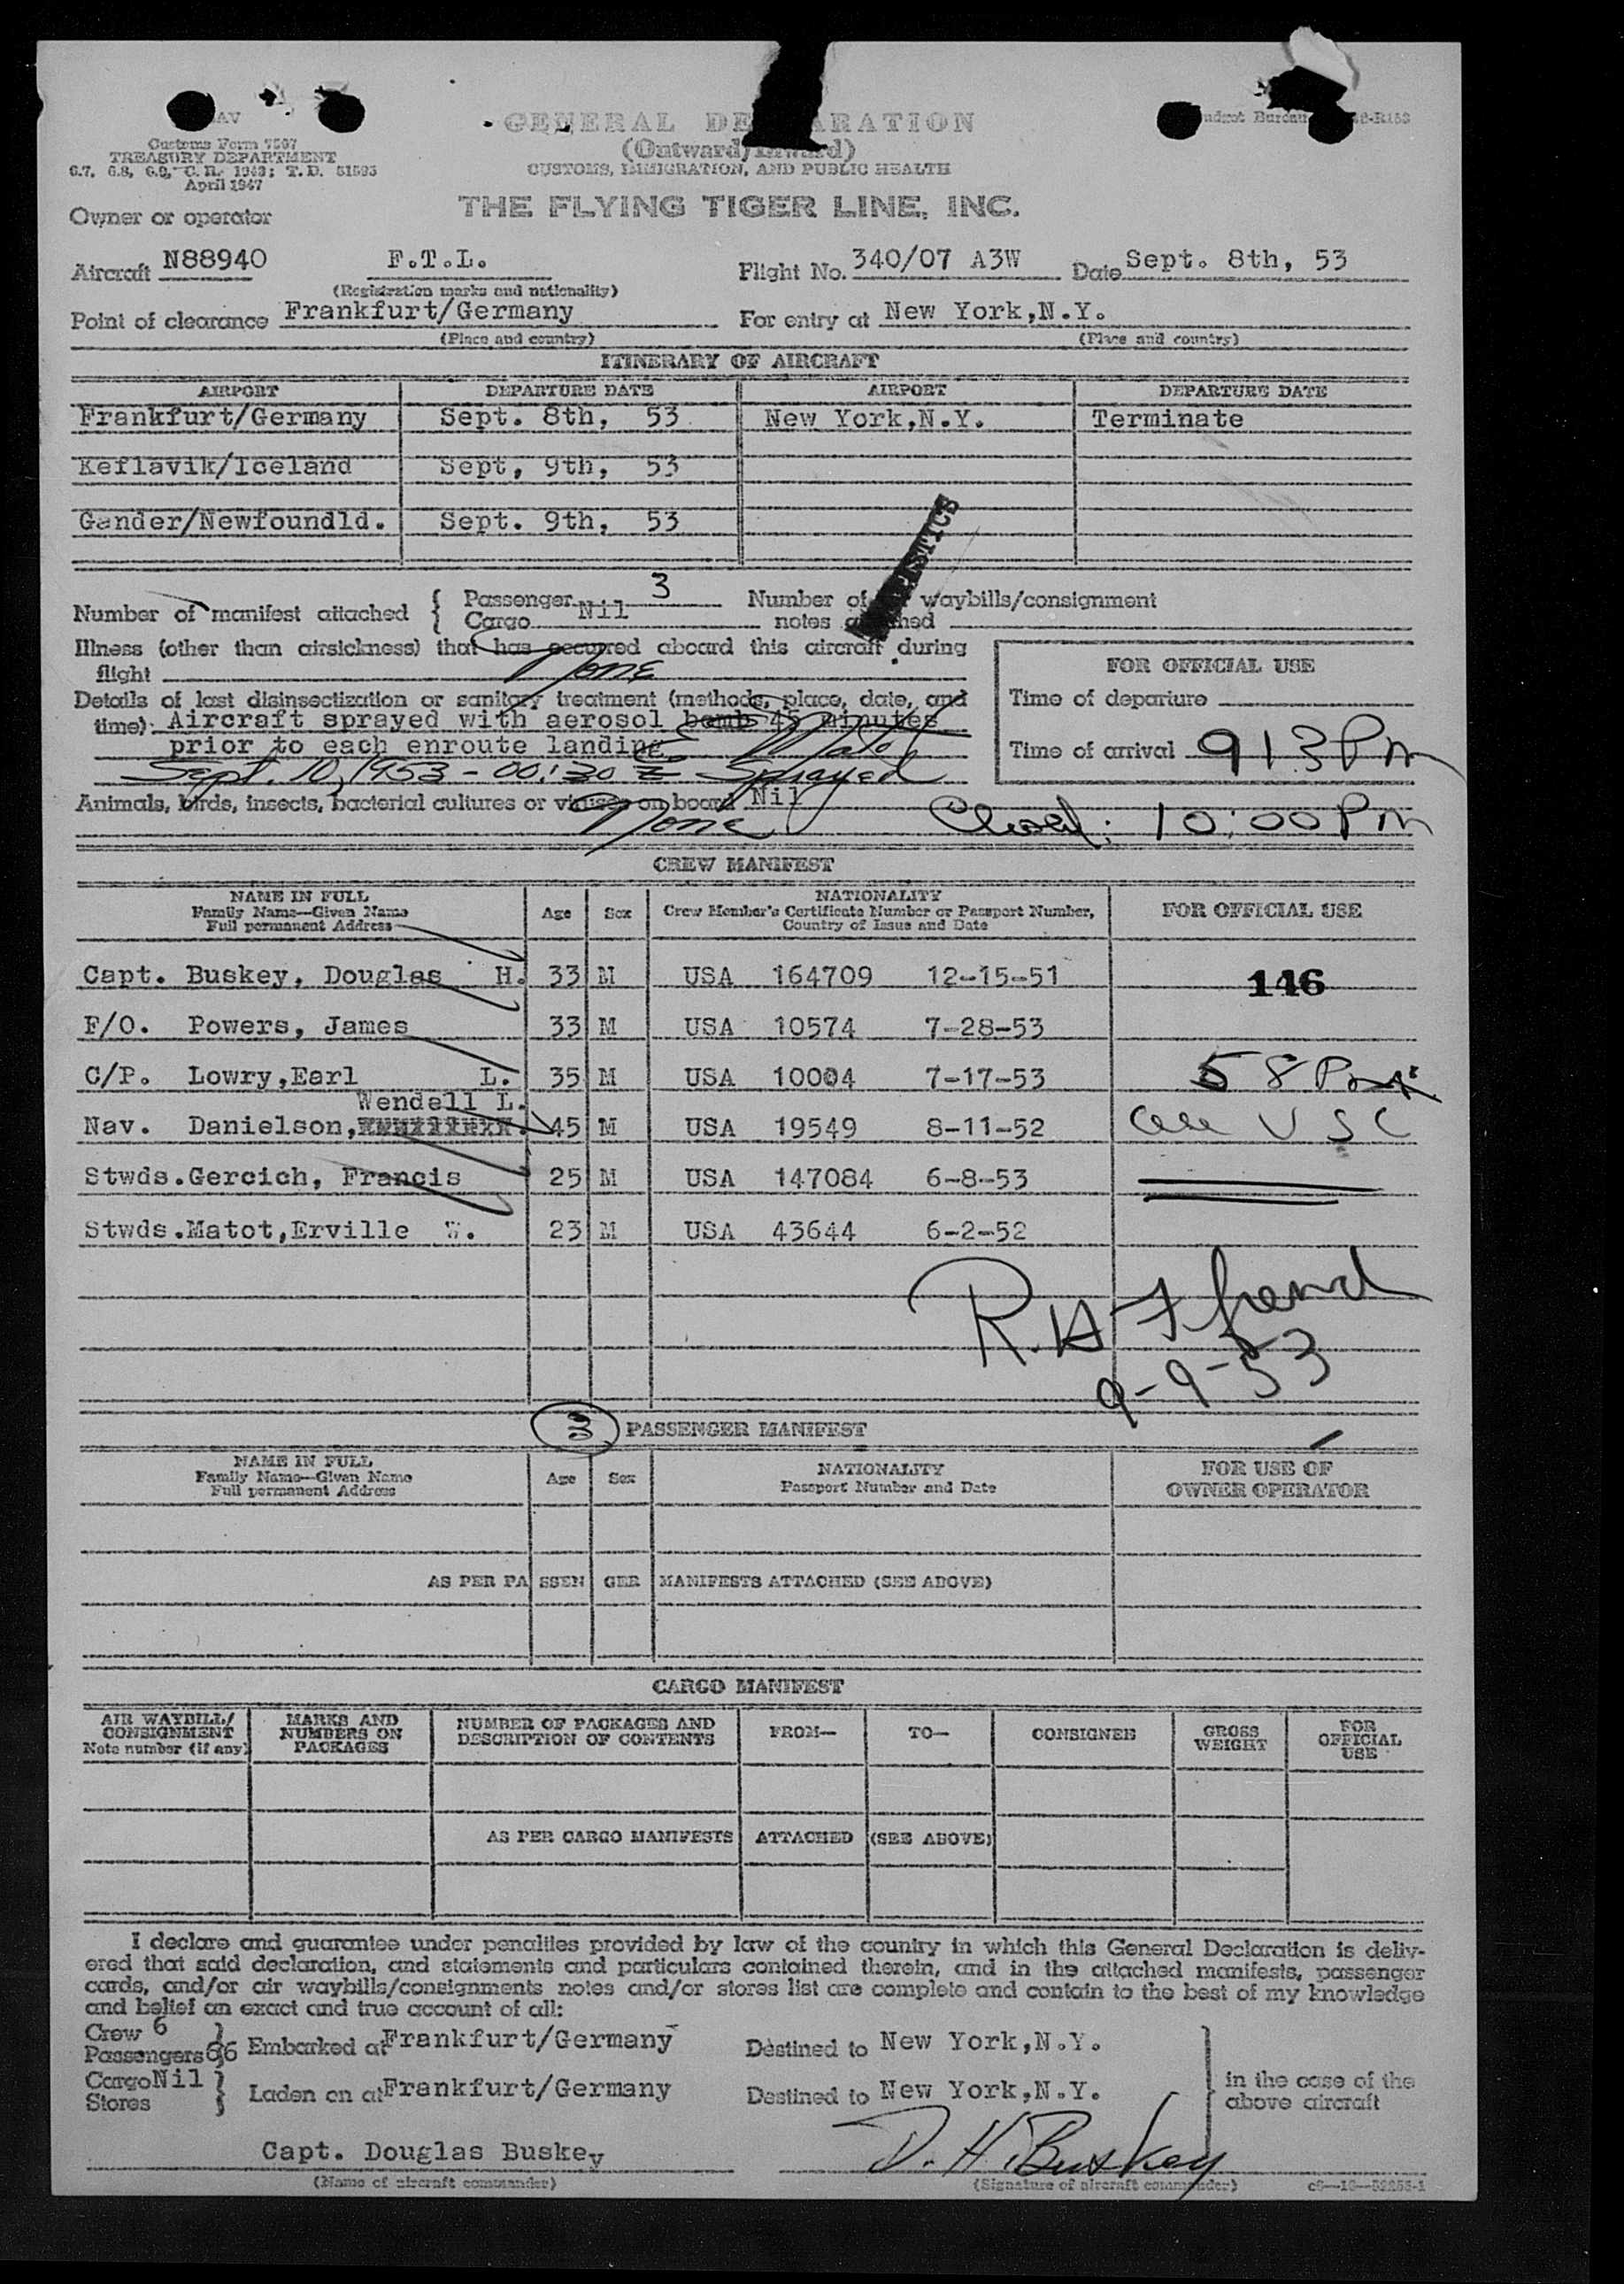 AV
GENERAL DE ARATION
udget Bureau
Customs Form 7507
TREASURY DEPARTMENT
6.7, 6.8, 6.9, C. R. 1943; T. D. 51593
April 1947
(Outward)
CUSTOMS, IMMIGRATION, AND PUBLIC HEALTH
Owner or operator
THE FLYING TIGER LINE, INC.
Aircraft N88940 F.T.L. Flight No. 340/07 A3W Date Sept. 8th, 53
(Registration marks and nationality)
Point of clearance Frankfurt/Germany For entry at New York,N.Y.
(Place and country) (Place and country)
ITINERARY OF AIRCRAFT
AIRPORT DEPARTURE DATE AIRPORT DEPARTURE DATE
Frankfurt/Germany Sept. 8th, 53 New York,N.Y. Terminate
Keflavik/Iceland Sept, 9th, 53
Gander/Newfoundld. Sept. 9th, 53
Number of manifest attached { Passenger 3 Number of waybills/consignment
Cargo Nil notes attached
Illness (other than airsickness) that has occurred aboard this aircraft during
flight None
FOR OFFICIAL USE
Details of last disinsectization or sanitary treatment (methods, place, date, and
Time of departure
time): Aircraft sprayed with aerosol bomb 45 minutes
prior to each enroute landing Matot
Time of arrival 913 Pm
Sept. 10, 1953 - 00:30 Z Sprayed
Animals, birds, insects, bacterial cultures or viruses on board Nil
None Closed: 10:00 Pm
CREW MANIFEST
NAME IN FULL
Family Name—Given Name
Full permanent Address
Age Sex
NATIONALITY
Crew Member's Certificate Number or Passport Number,
Country of Issue and Date
FOR OFFICIAL USE
Capt. Buskey, Douglas H. 33 M USA 164709 12-15-51 146
F/O. Powers, James 33 M USA 10574 7-28-53
C/P. Lowry,Earl L. 35 M USA 10004 7-17-53 58
Wendell L.
Nav. Danielson, 45 M USA 19549 8-11-52 All USC
Stwds.Gercich, Francis 25 M USA 147084 6-8-53
Stwds.Matot,Erville W. 23 M USA 43644 6-2-52
R.H.
9-9-53
3 PASSENGER MANIFEST
NAME IN FULL
Family Name—Given Name
Full permanent Address
Age Sex
NATIONALITY
Passport Number and Date
FOR USE OF
OWNER OPERATOR
AS PER PASSENGER MANIFESTS ATTACHED (SEE ABOVE)
CARGO MANIFEST
AIR WAYBILL/
CONSIGNMENT
Note number (if any)
MARKS AND
NUMBERS ON
PACKAGES
NUMBER OF PACKAGES AND
DESCRIPTION OF CONTENTS
FROM— TO— CONSIGNEE
GROSS
WEIGHT
FOR
OFFICIAL
USE
AS PER CARGO MANIFESTS ATTACHED (SEE ABOVE)
I declare and guarantee under penalties provided by law of the country in which this General Declaration is deliv-
ered that said declaration, and statements and particulars contained therein, and in the attached manifests, passenger
cards, and/or air waybills/consignments notes and/or stores list are complete and contain to the best of my knowledge
and belief an exact and true account of all:
Crew 6
Passengers 66 } Embarked at Frankfurt/Germany Destined to New York,N.Y.
Cargo Nil
Stores } Laden on at Frankfurt/Germany Destined to New York,N.Y.
in the case of the
above aircraft
Capt. Douglas Buskey D. H. Buskey
(Name of aircraft commander) (Signature of aircraft commander)